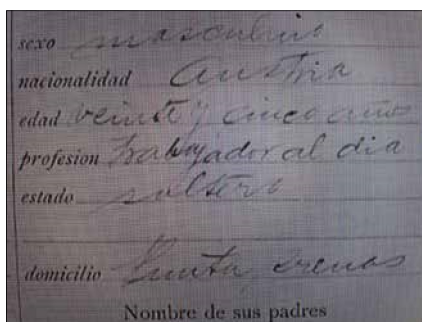 sexo masculino
nacionalidad Austria
edad veinte y cinco años
profesion trabajador al dia
estado soltero
domicilio Punta Arenas
Nombre de sus padres